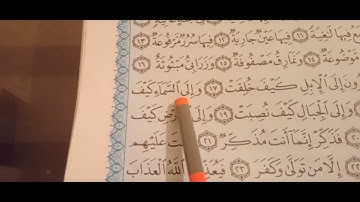 فِيهَا لَٰغِيَةً ۝١١ فِيهَا عَيْنٌ جَارِيَةٌ ۝١٢ فِيهَا سُرُرٌ مَّرْفُوعَةٌ ۝١٣
مَّوْضُوعَةٌ ۝١٤ وَنَمَارِقُ مَصْفُوفَةٌ ۝١٥ وَزَرَابِيُّ مَبْثُوثَةٌ ۝١٦
إِلَى الْإِبِلِ كَيْفَ خُلِقَتْ ۝١٧ وَإِلَى السَّمَاءِ كَيْفَ
وَإِلَى الْجِبَالِ كَيْفَ نُصِبَتْ ۝١٩ وَإِلَى كَيْفَ
فَذَكِّرْ إِنَّمَا أَنتَ مُذَكِّرٌ ۝٢١ عَلَيْهِم
إِلَّا مَن تَوَلَّىٰ وَكَفَرَ ۝٢٣ اللَّهُ الْعَذَابَ